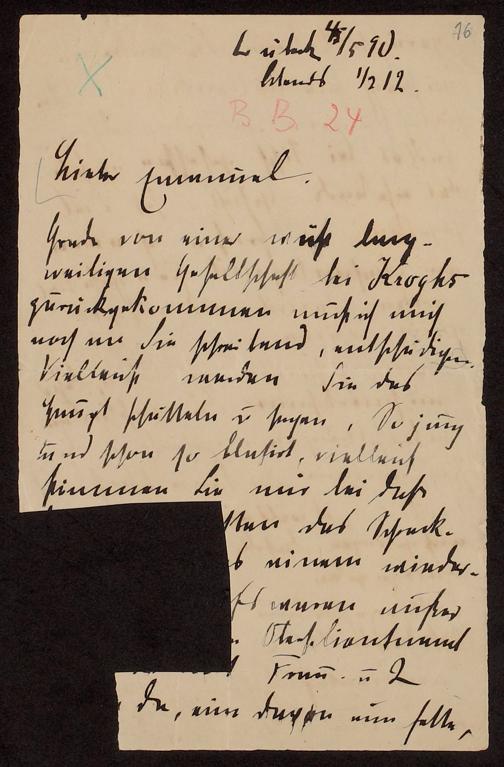 76
Lübeck 4/5/5 90.
Abends 1/2 12.
B. B. 24
Lieber Emanuel.
Grade von einer wüst lang-
weiligen Gesellschaft bei Kroghs
zurückgekommen muß ich mich
noch an Sie schreibend, entschädigen.
Vielleicht werden Sie das
Haupt schütteln u sagen, So jung
und schon so blasirt, vielleicht
stimmen Sie mir bei daß
das Schreck-
einem wieder-
waren außer
Oberstlieutenant
Frau u 2
da, eine davon eine fette,